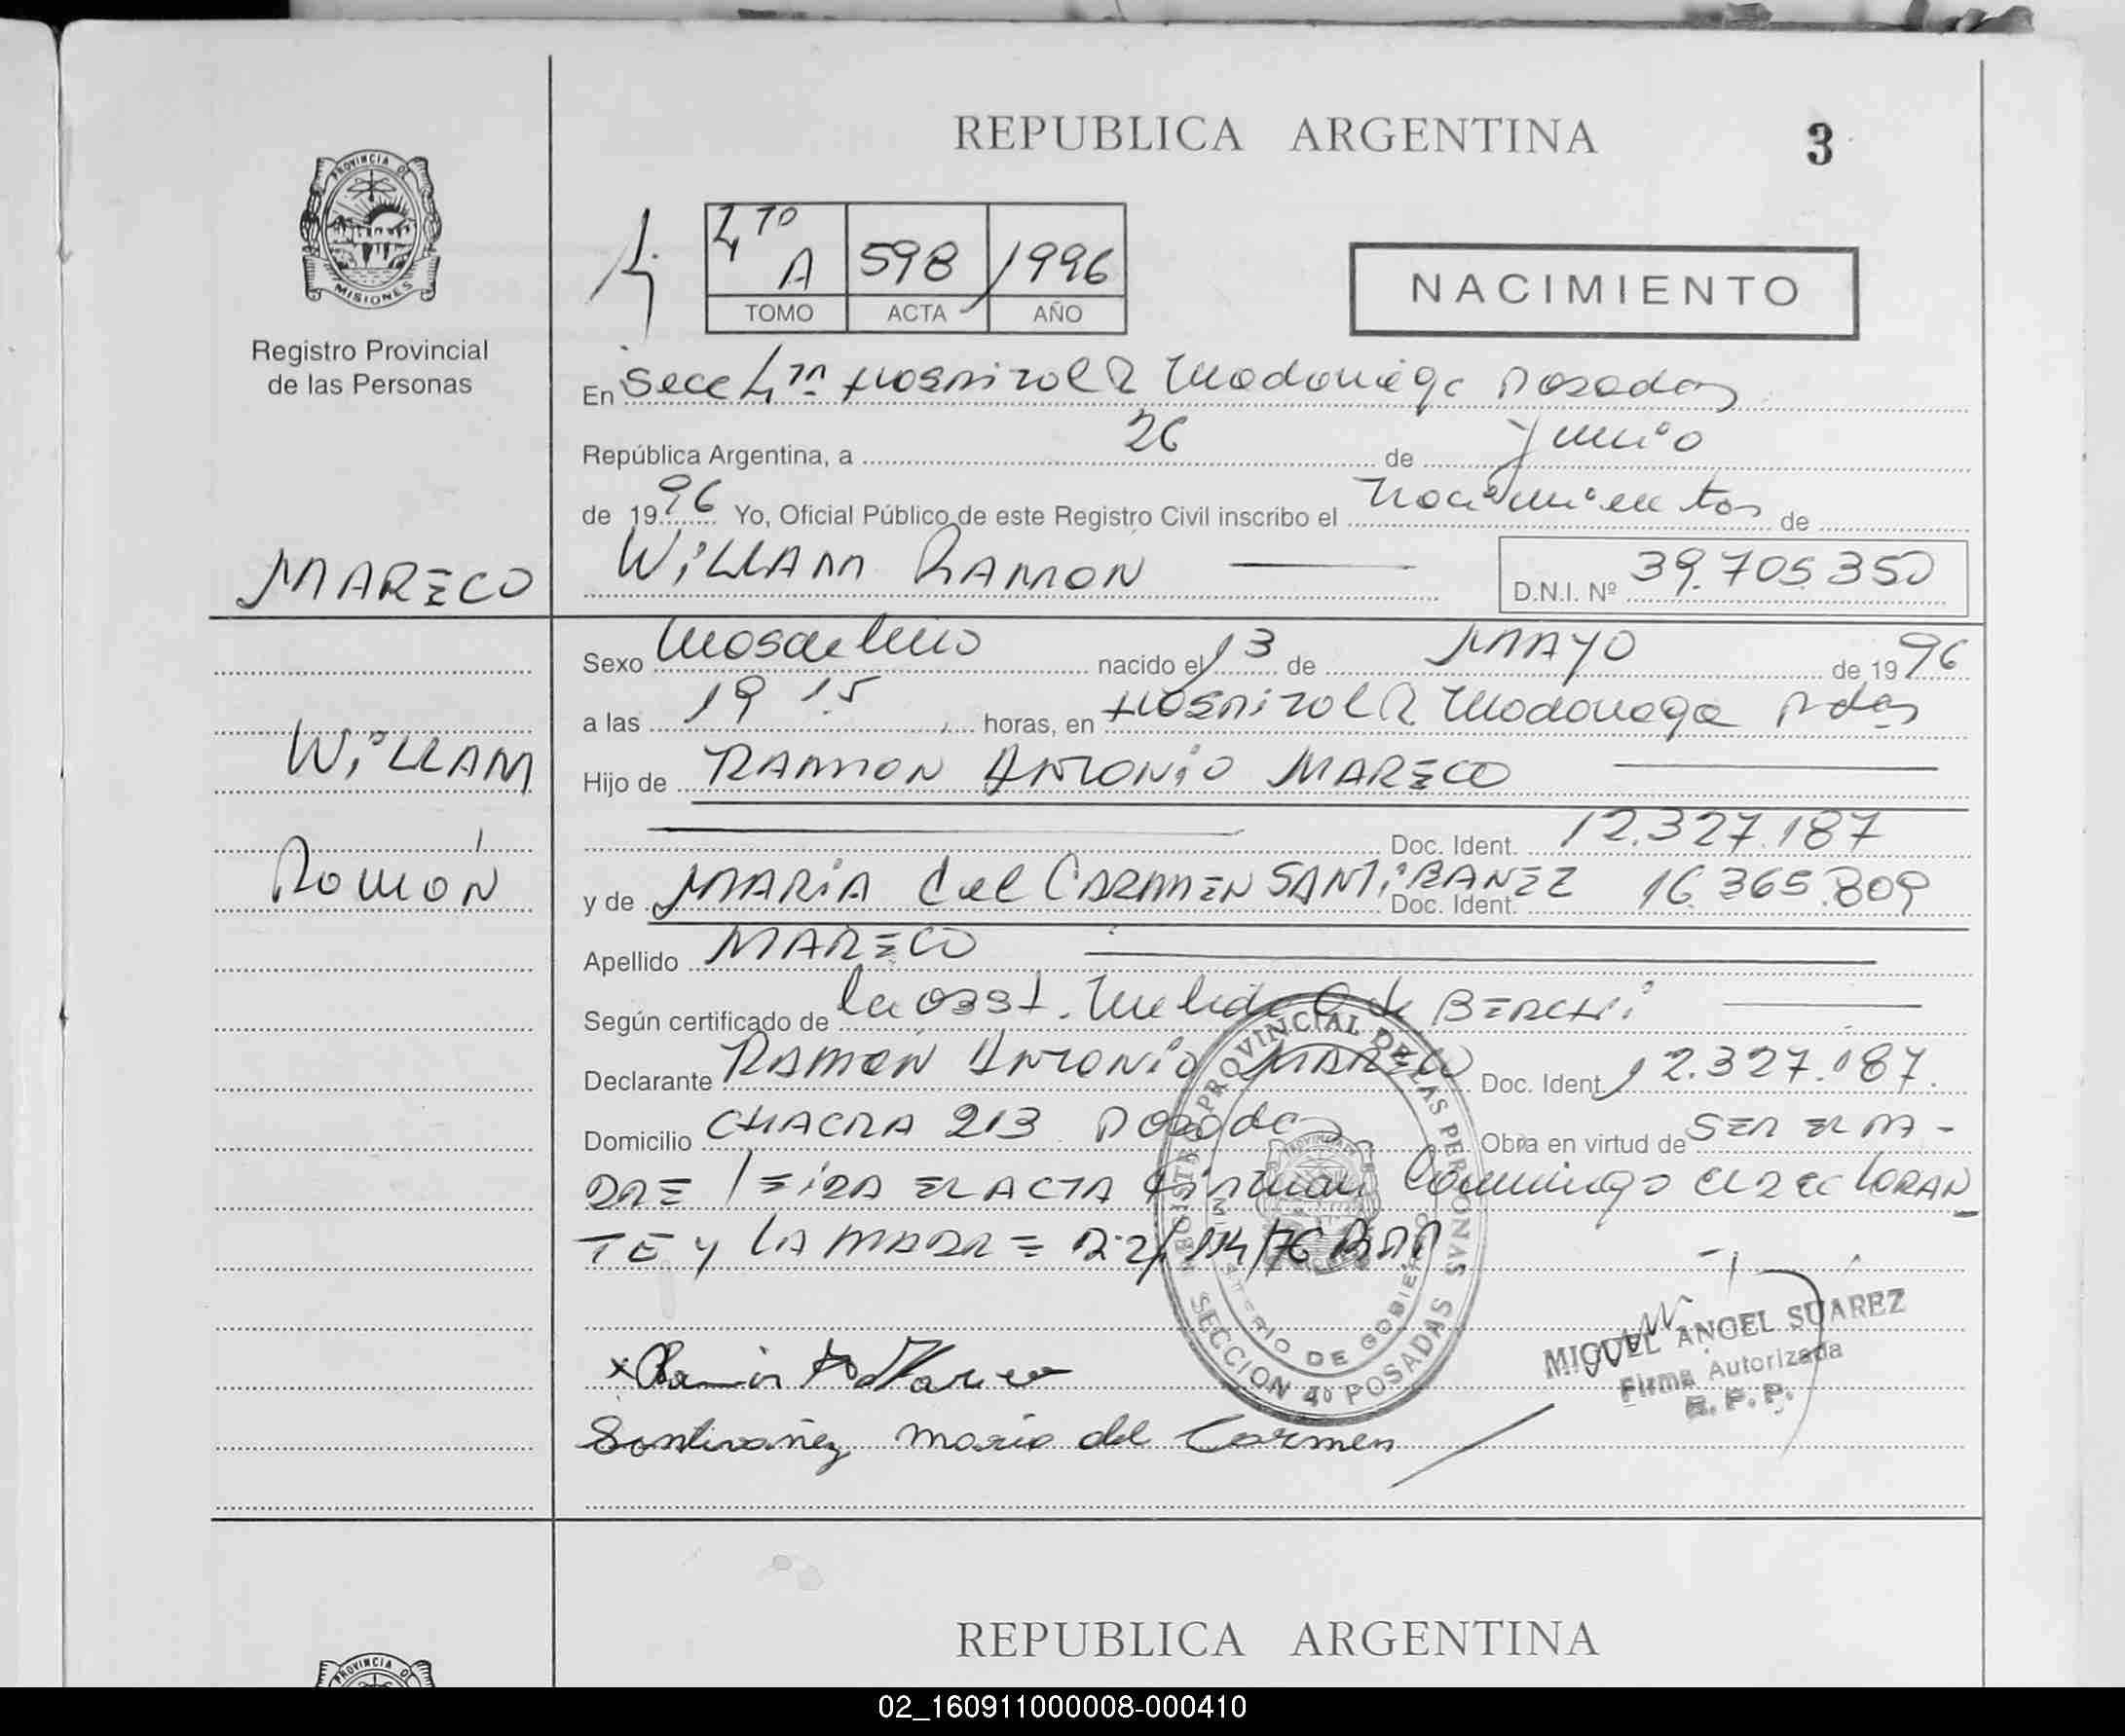 REPUBLICA ARGENTINA
3
PROVINCIA DE
MISIONES
Registro Provincial
de las Personas
4to A 598 1996
TOMO ACTA AÑO
NACIMIENTO
En Secc 4ta Hospital R Madariaga Posadas
República Argentina, a 26 de Junio
de 1996 Yo, Oficial Público de este Registro Civil inscribo el Nacimiento de
MARECO
WiLLAM RAMON
D.N.I. Nº 39.705.350
Sexo Masculino nacido el 13 de MAYO de 1996
a las 19 15 horas, en Hospital R. Madariaga Pdas
WiLLAM
Hijo de RAMON ANTONiO MARECO
Doc. Ident. 12.327.187
Ramón
y de MARiA del CARMEN SANTiBANEZ Doc. Ident. 16.365.809
Apellido MARECO
Según certificado de la obst. de BERCHi
Declarante RAMON ANTONiO MARECO Doc. Ident. 12.327.187.
Domicilio CHACRA 213 Posadas Obra en virtud de SER EL PA-
DRE LEiDA EL ACTA Firman Conmigo el declaRAN
TE y LA MADRE
REGISTRO PROVINCIAL DE LAS PERSONAS
MINISTERIO DE GOBIERNO
SECCION 4º POSADAS
MIGUEL ANGEL SUAREZ
Firma Autorizada
R.P.P.
x Ramón A Mareco
Santivañez maria del Carmen
REPUBLICA ARGENTINA
PROVINCIA DE
02_160911000008-000410